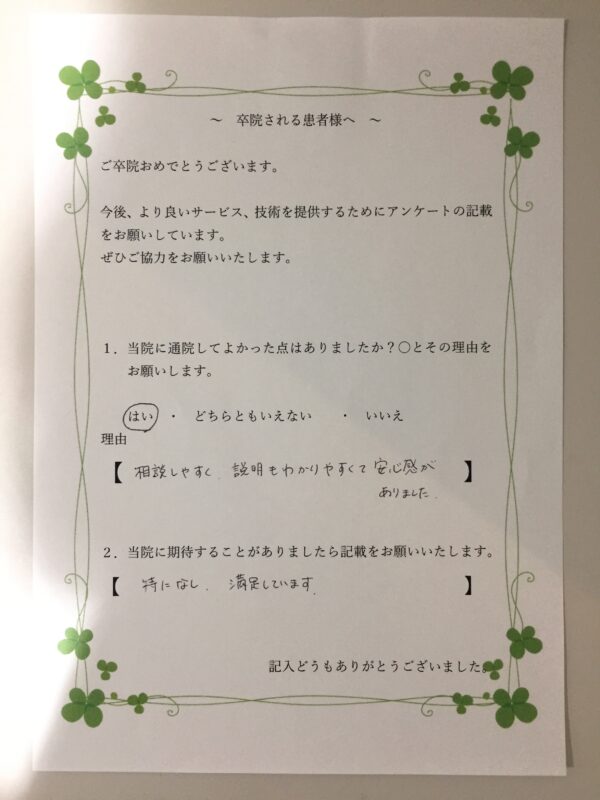 ～　卒院される患者様へ　～
ご卒院おめでとうございます。
今後、より良いサービス、技術を提供するためにアンケートの記載
をお願いしています。
ぜひご協力をお願いいたします。
１．当院に通院してよかった点はありましたか？〇とその理由を
お願いします。
はい　・　どちらともいえない　・　いいえ
理由
【 相談しやすく、説明もわかりやすくて安心感が 】
ありました。
２．当院に期待することがありましたら記載をお願いいたします。
【 特になし、満足しています。 】
記入どうもありがとうございました。